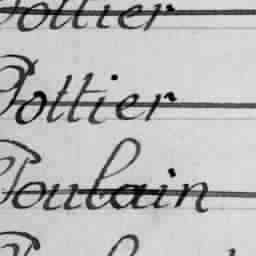 Pottier
Pottier
Poulain